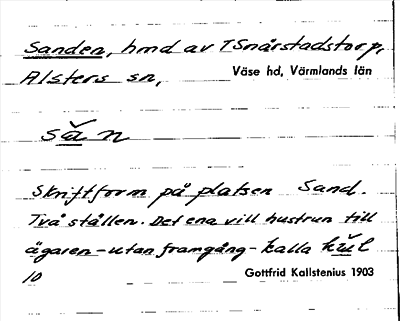 Sanden, hmd av TSnårstadstorp,
Alsters sn, Väse hd, Värmlands län
sǎn
Skriftform på platsen Sand.
Två ställen. Det ena vill hustrun till
ägaren - utan framgång - kalla
10 Gottfrid Kallstenius 1903